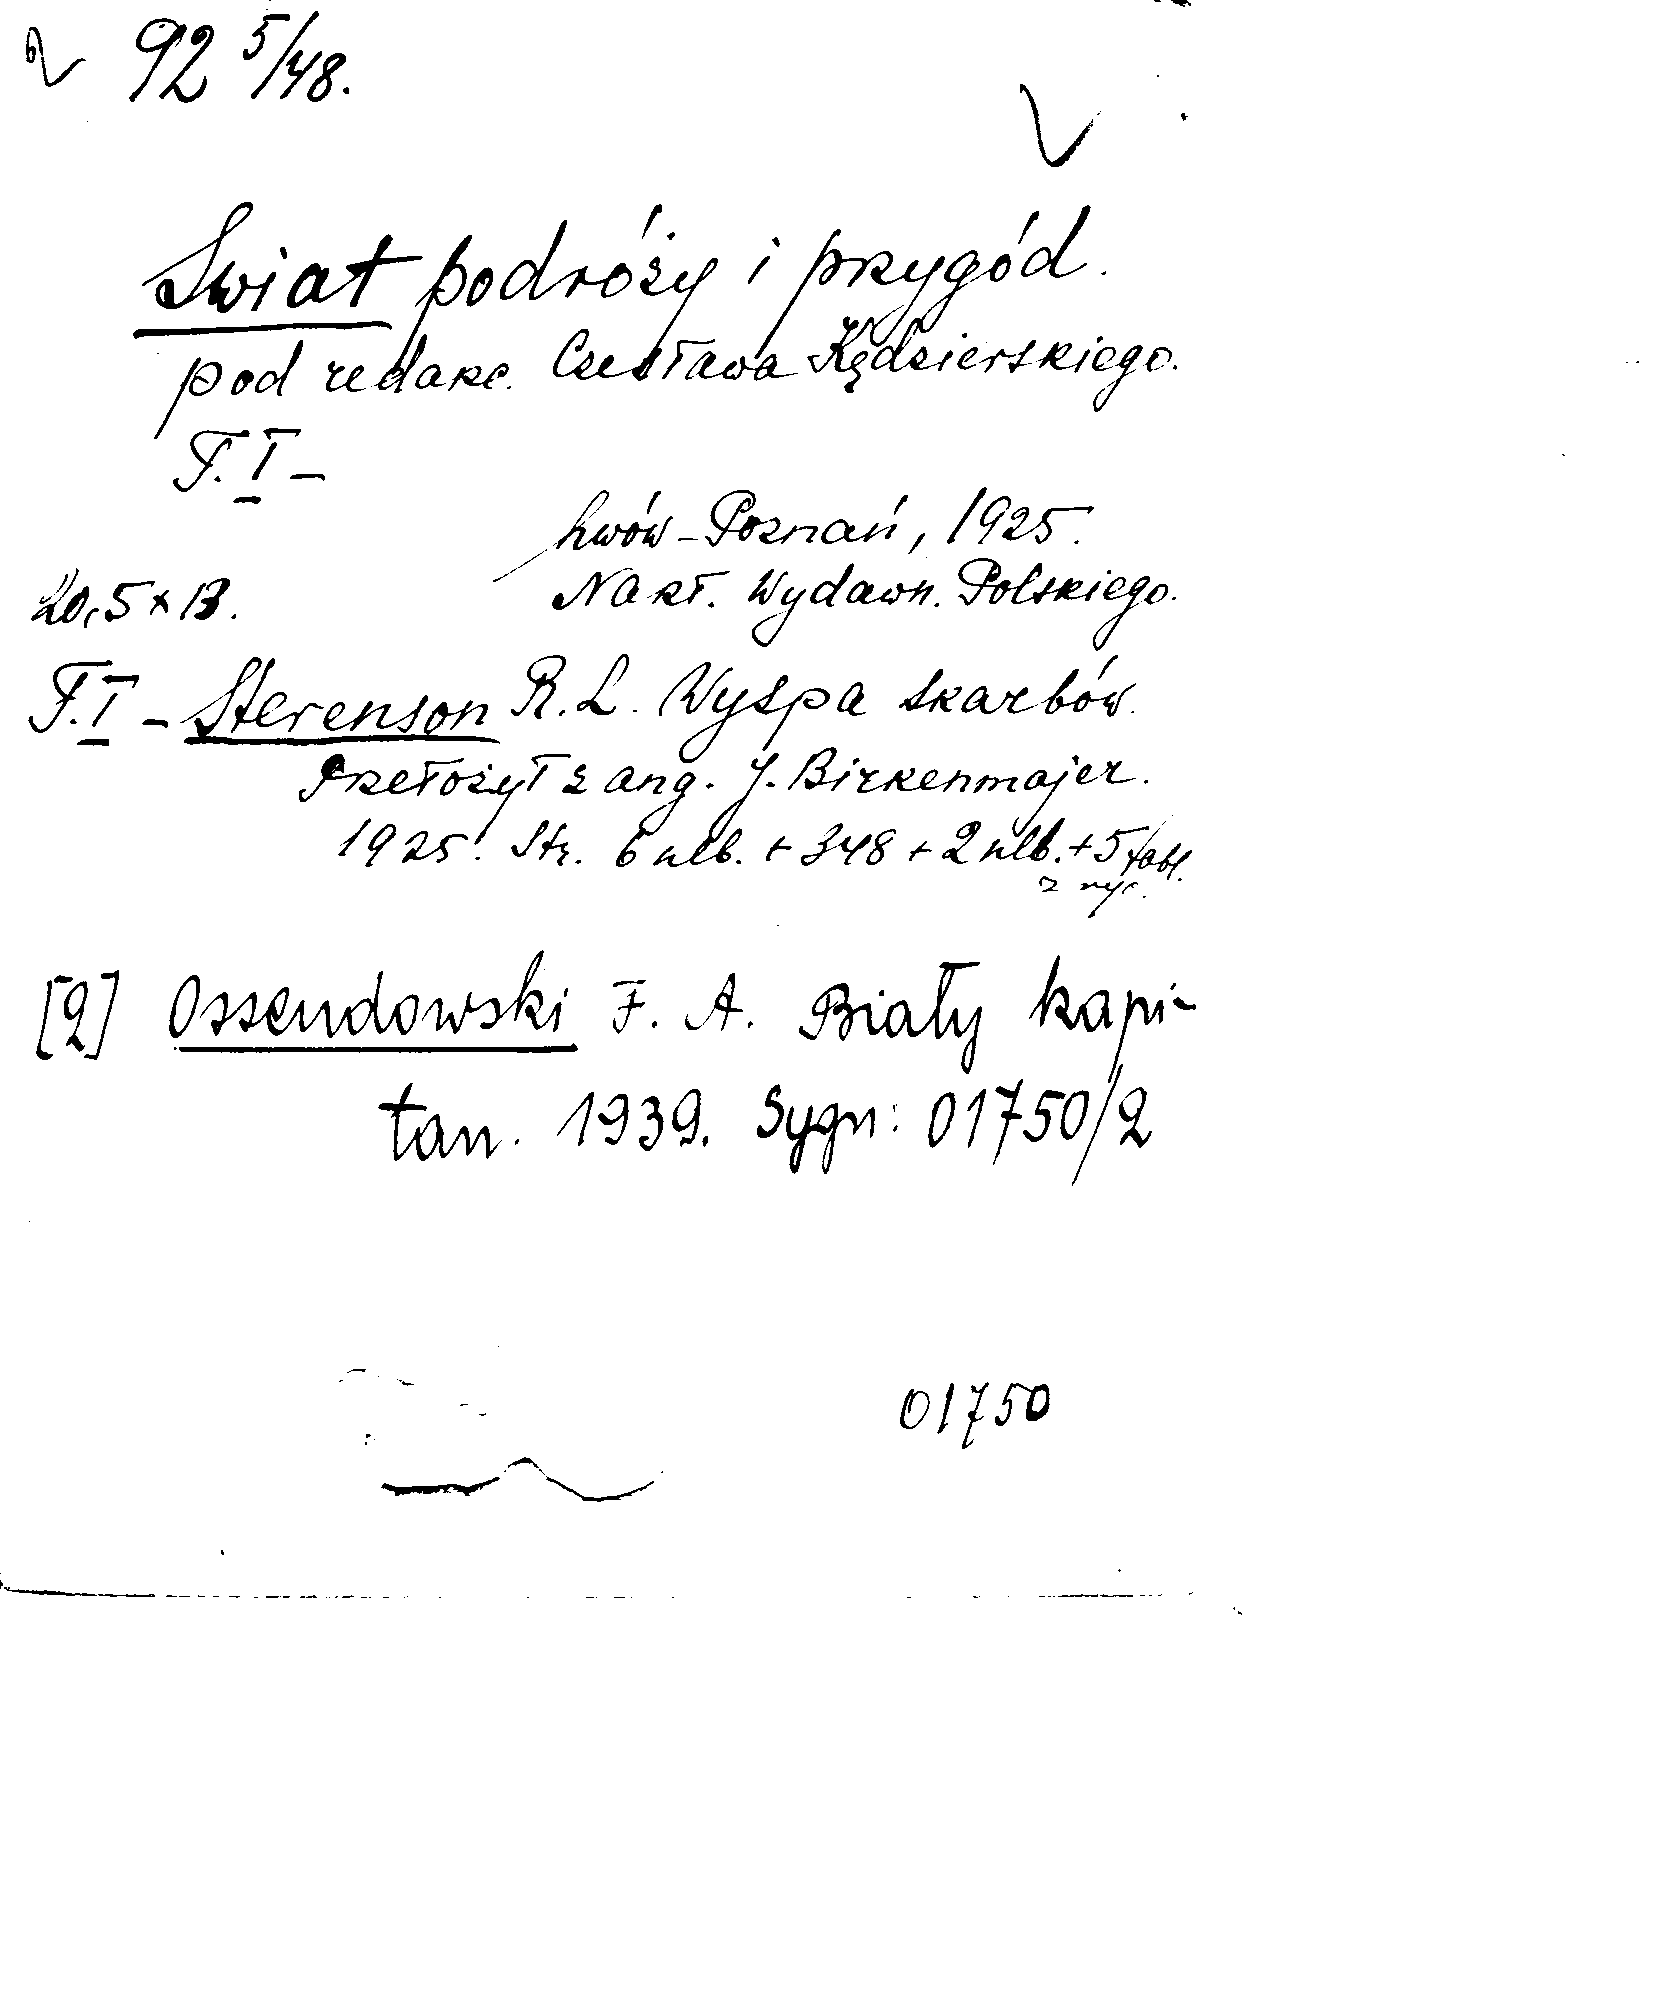 92 5/48.
Swiat podróży i przygód.
pod redakc. Czesława Kędzierskiego.
T. I –
Lwów – Poznań, 1925.
Nakł. Wydawn. Polskiego.
20,5 x 13.
T. I – Sterenson R. L. Wyspa skarbów.
Przełożył z ang. J. Birkenmajer.
1925. Str. 6 nlb. + 348 + 2 nlb. + 5 tabl.
z ryc.
[2] Ossendowski F. A. Biały kapi-
tan. 1939. Sygn: 01750/2
01750